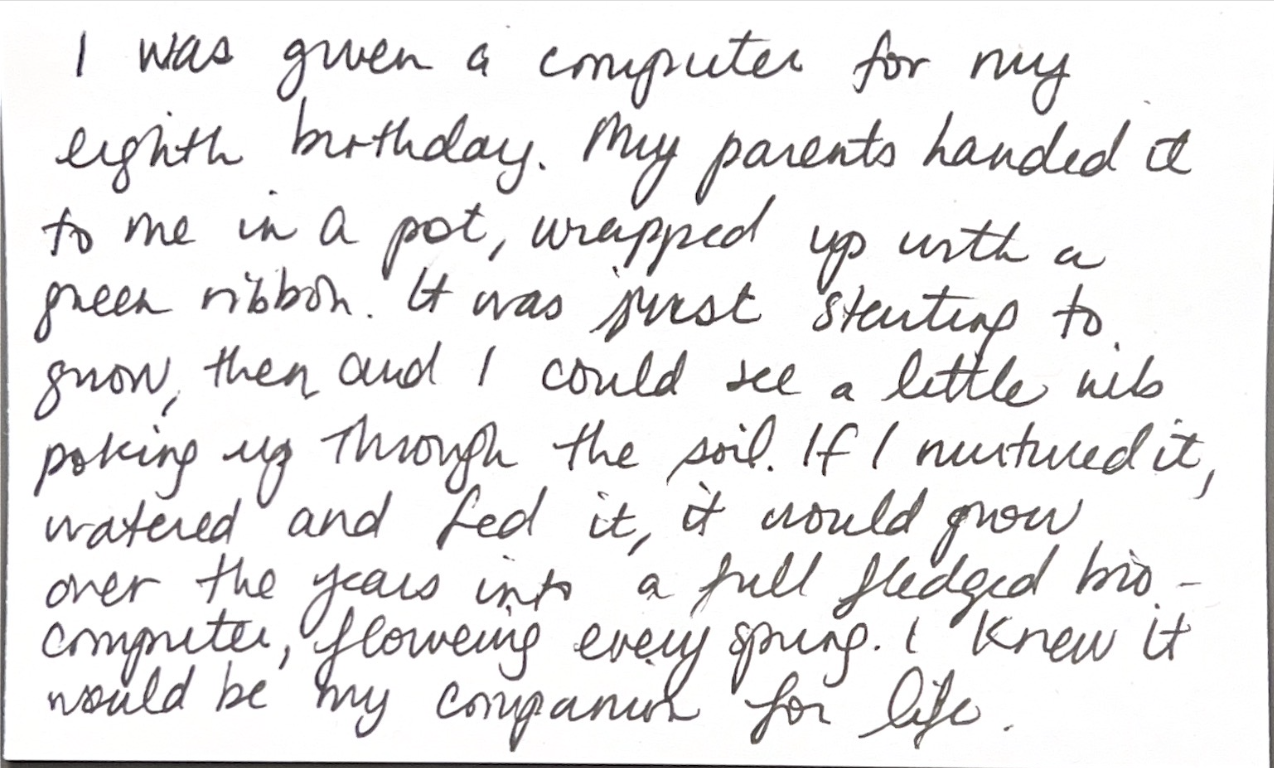 I was given a computer for my
eighth birthday. My parents handed it
to me in a pot, wrapped up with a
green ribbon. It was just starting to
grow, then and I could see a little nib
poking up through the soil. If I nurtured it,
watered and fed it, it would grow
over the years into a full fledged bio-
computer, flowering every spring. I knew it
would be my companion for life.